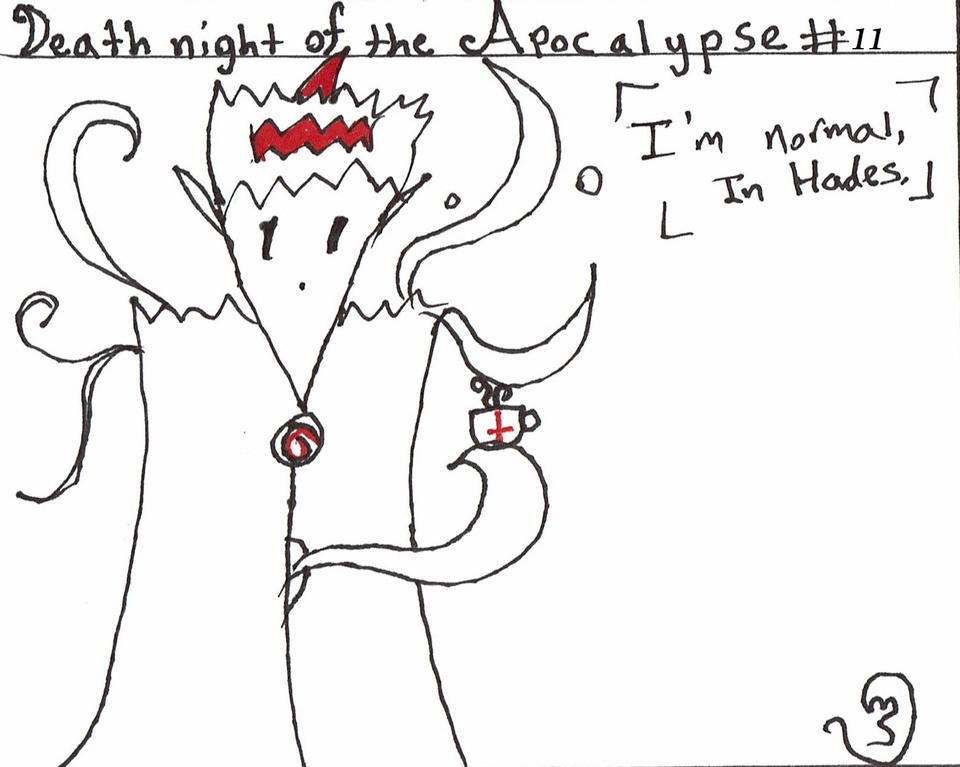 Death night of the Apocalypse #11
I'm normal,
In Hades.